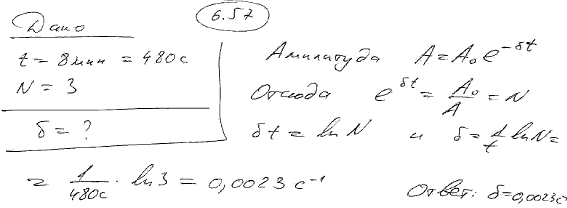 6.57
Дано
t = 8мин = 480с
N = 3
δ = ?
Амплитуда A = A₀e^{-δt}
Отсюда e^{δt} = A₀/A = N
δt = ln N и δ = 1/t ln N =
= 1/480с · ln3 = 0,0023 с⁻¹
Ответ: δ=0,0023с⁻